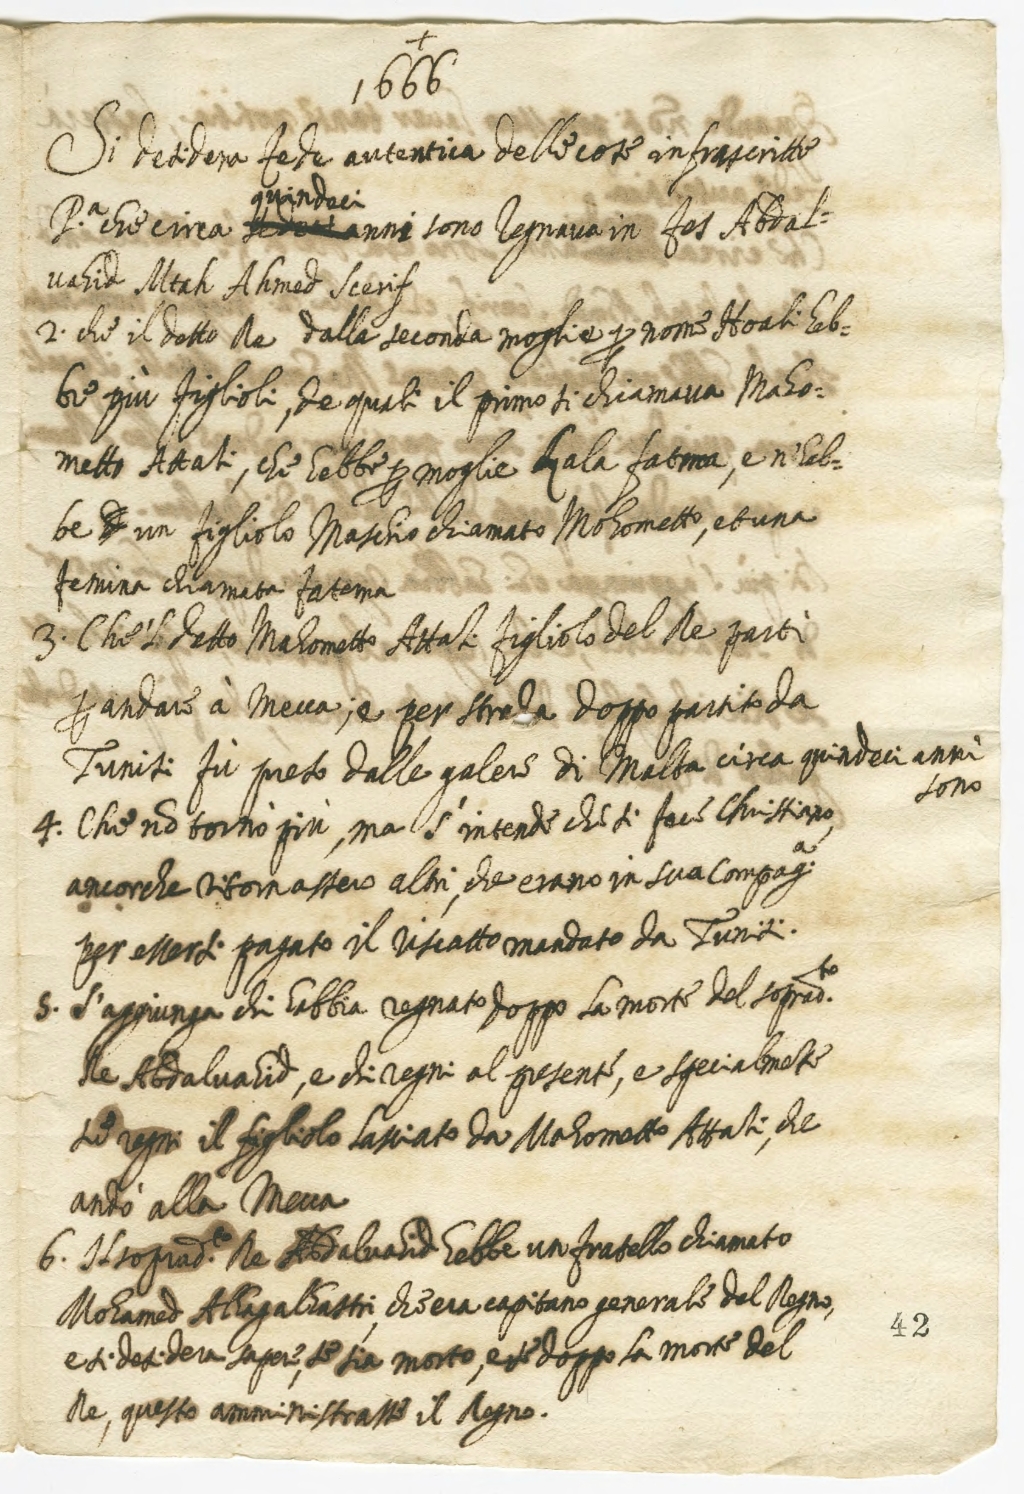 +
1666
Si desidera fede autentica delle cose infrascritte
P.a che circa quindeci anni sono Regnava in Fes Abdal=
vahid Mtah Ahmed Scerif
2. che il detto Re dalla seconda moglie p nome Hoali heb=
be più figlioli, de quali il primo si chiamava Maho=
metto Attasi, che hebbe p moglie Lala fatma, e n'heb=
be un figliolo Maschio chiamato Mohometto, et una
femina chiamata fatema
3. Che'l detto Mahometto Attasi figliolo del Re partì
p andare à Mecca; e per strada doppo partito da
Tunisi fù preso dalle galere di Malta circa quindeci anni
sono
4. Che nō tornò più, ma s'intende che si fece Christiano,
ancorche ritornassero altri, che erano in sua Compag.a
per essersi pagato il riscatto mandato da Tunisi.
5. S'aggiunga chi habbia regnato doppo la morte del soprad.to
Re Abdalvahid, e chi regni al presente, e specialmēte
se regni il figliolo lasciato da Mahometto Attasi, che
andò alla Mecca
6. Il soprad.to Re Abdalvahid hebbe un fratello chiamato
Mohamed, che era capitano generale del Regno,
e si desidera sapere, se sia morto, e se doppo la morte del
Re, questo amministrasse il Regno.
42